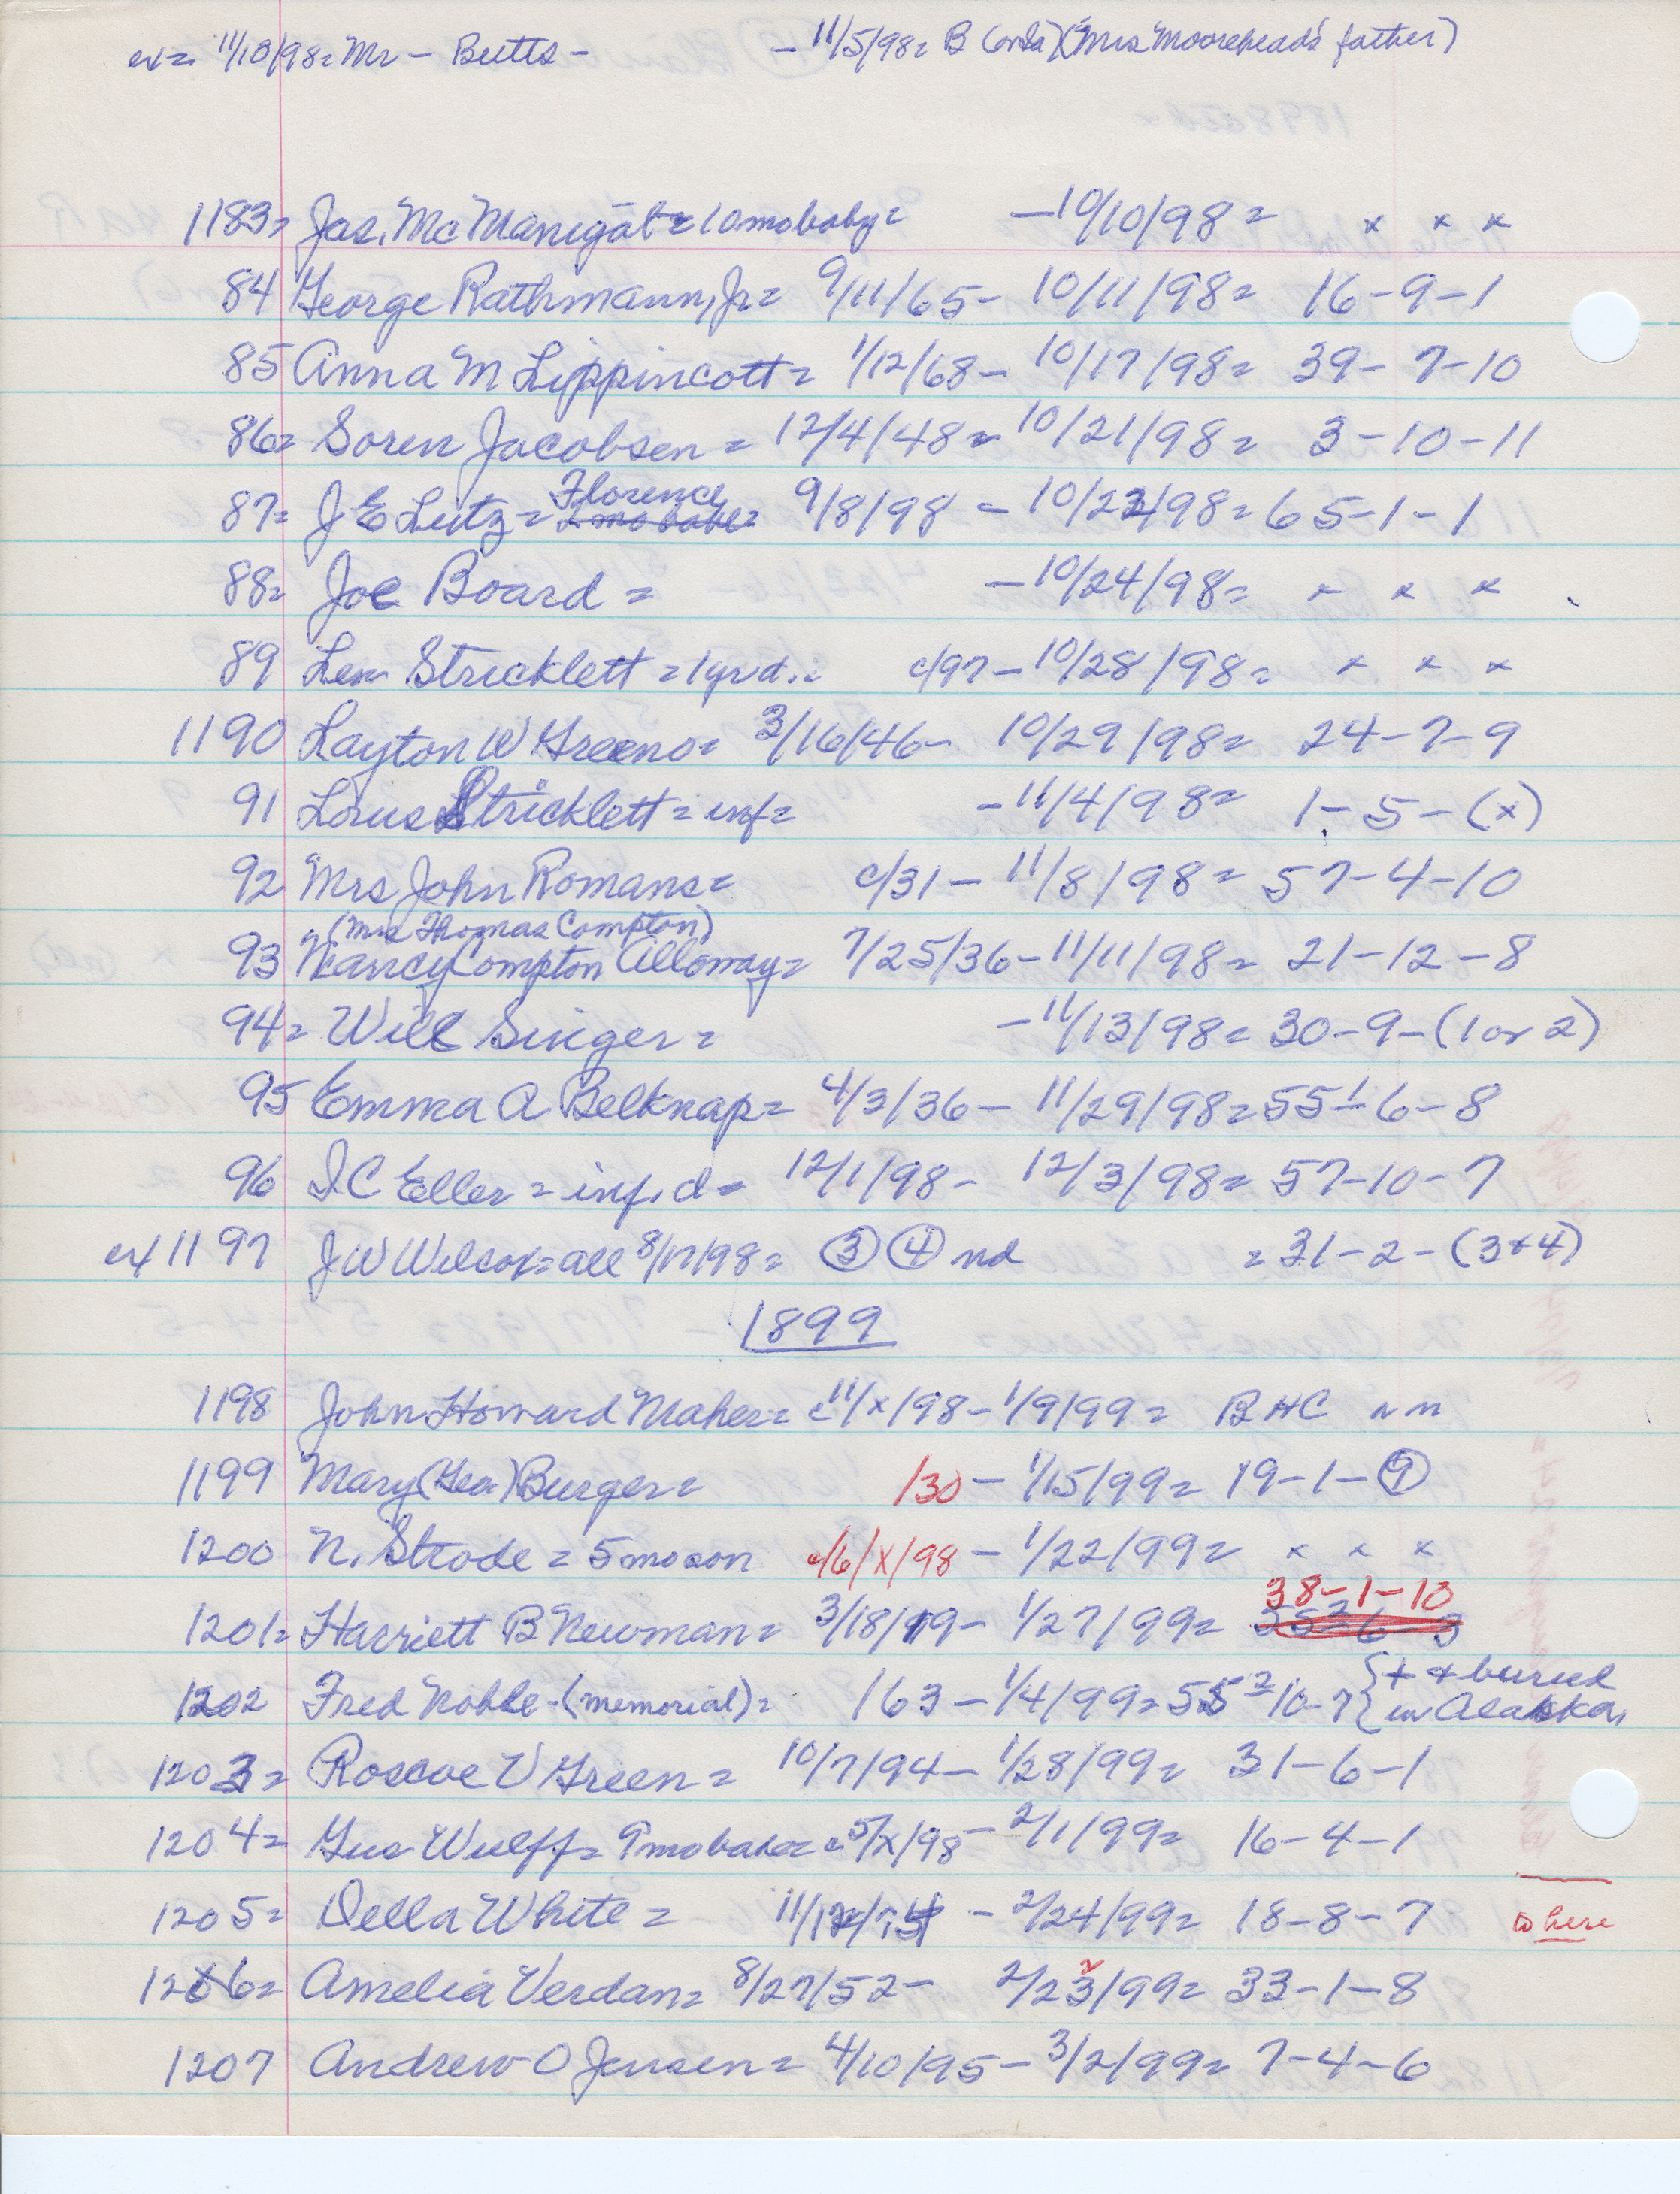 ex = 11/10/98 = Mr - Butts - - 11/5/98 = B (or Ia) (Mrs Moorehead's father)
1183 = Jas. Mc Manigal = 10 mo baby = - 10/10/98 = x x x
84 George Rathmann, Jr = 9/11/65 - 10/11/98 = 16-9-1
85 Anna M Lippincott = 1/12/68 - 10/17/98 = 39-7-10
86 = Soren Jacobsen = 12/4/48 = 10/21/98 = 3-10-11
87 = J E Lutz = Florence 9/8/98 - 10/22/98 = 65-1-1
88 = Joe Board = - 10/24/98 = x x x
89 Lem Stricklett = 1 yr d. = c/97 - 10/28/98 = x x x
1190 Layton W Greeno = 3/16/46 - 10/29/98 = 24-7-9
91 Louis Stricklett = inf = - 11/4/98 = 1-5-(x)
92 Mrs John Romans = c/31 - 11/8/98 = 57-4-10
(Mrs Thomas Compton)
93 Nancy Compton Alloway = 7/25/36 - 11/11/98 = 21-12-8
94 = Will Singer = - 11/13/98 = 30-9-(1 or 2)
95 Emma A Belknap = 4/3/36 - 11/29/98 = 55 1-6-8
96 I C Eller = inf. d = 12/1/98 - 12/3/98 = 57-10-7
ex 1197 J W Wilcox = all 8/17/98 = ③ ④ nd = 31-2-(3+4)
1899
1198 John Howard Maher = c 11/x/98 - 1/9/99 = B HC nm
1199 Mary (Geo.) Burger = /30 - 1/15/99 = 19-1-⑨
1200 N. Strode = 5 mo son c/6/X/98 - 1/22/99 = x x x
38-1-10
1201 = Harriett B Newman = 3/18/19 - 1/27/99 = 35 2 6-3
1202 Fred Noble - (memorial) = /63 - 1/4/99 = 55 2 10-7 { + + buried
in Alaska,
1203 = Roscoe V Green = 10/7/94 - 1/28/99 = 31-6-1
1204 = Gus Wulff = 9 mo babe = c 5/x/98 - 2/1/99 = 16-4-1
1205 = Della White = 11/12/74 - 2/24/99 = 18-8-7 to here
1206 = Amelia Verdan = 8/27/52 - 2/23/99 = 33-1-8
1207 Andrew O Jensen = 4/10/95 - 3/2/99 = 7-4-6